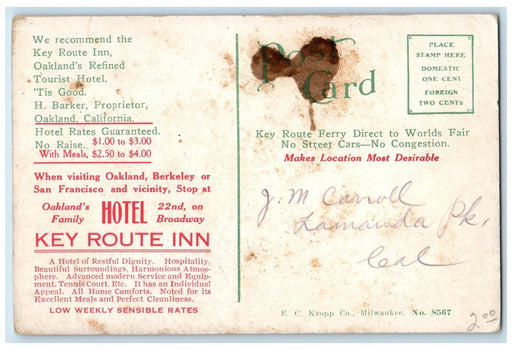 We recommend the
Key Route Inn,
Oakland's Refined
Tourist Hotel.
'Tis Good.
H. Barker, Proprietor,
Oakland, California.
Hotel Rates Guaranteed.
No Raise. $1.00 to $3.00
With Meals, $2.50 to $4.00
When visiting Oakland, Berkeley or
San Francisco and vicinity, Stop at
Oakland's Family HOTEL 22nd, on Broadway
KEY ROUTE INN
A Hotel of Restful Dignity. Hospitality,
Beautiful Surroundings, Harmonious Atmos-
phere. Advanced modern Service and Equip-
ment, Tennis Court, Etc. It has an Individual
Appeal. All Home Comforts. Noted for its
Excellent Meals and Perfect Cleanliness.
LOW WEEKLY SENSIBLE RATES
Post
Card
PLACE
STAMP HERE
DOMESTIC
ONE CENT
FOREIGN
TWO CENTS
Key Route Ferry Direct to Worlds Fair
No Street Cars—No Congestion.
Makes Location Most Desirable
J. M Carroll
Lamanda Pk,
Cal
E. C. Kropp Co., Milwaukee. No. 8567
2.00